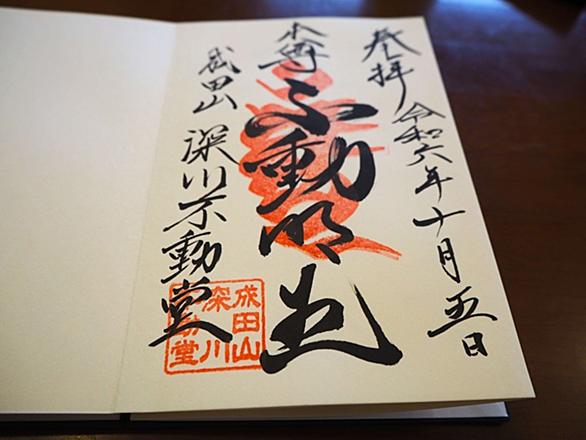 奉拝 令和六年十月五日
本尊
不動明王
成田山 深川不動堂
成田山
深川
不動堂